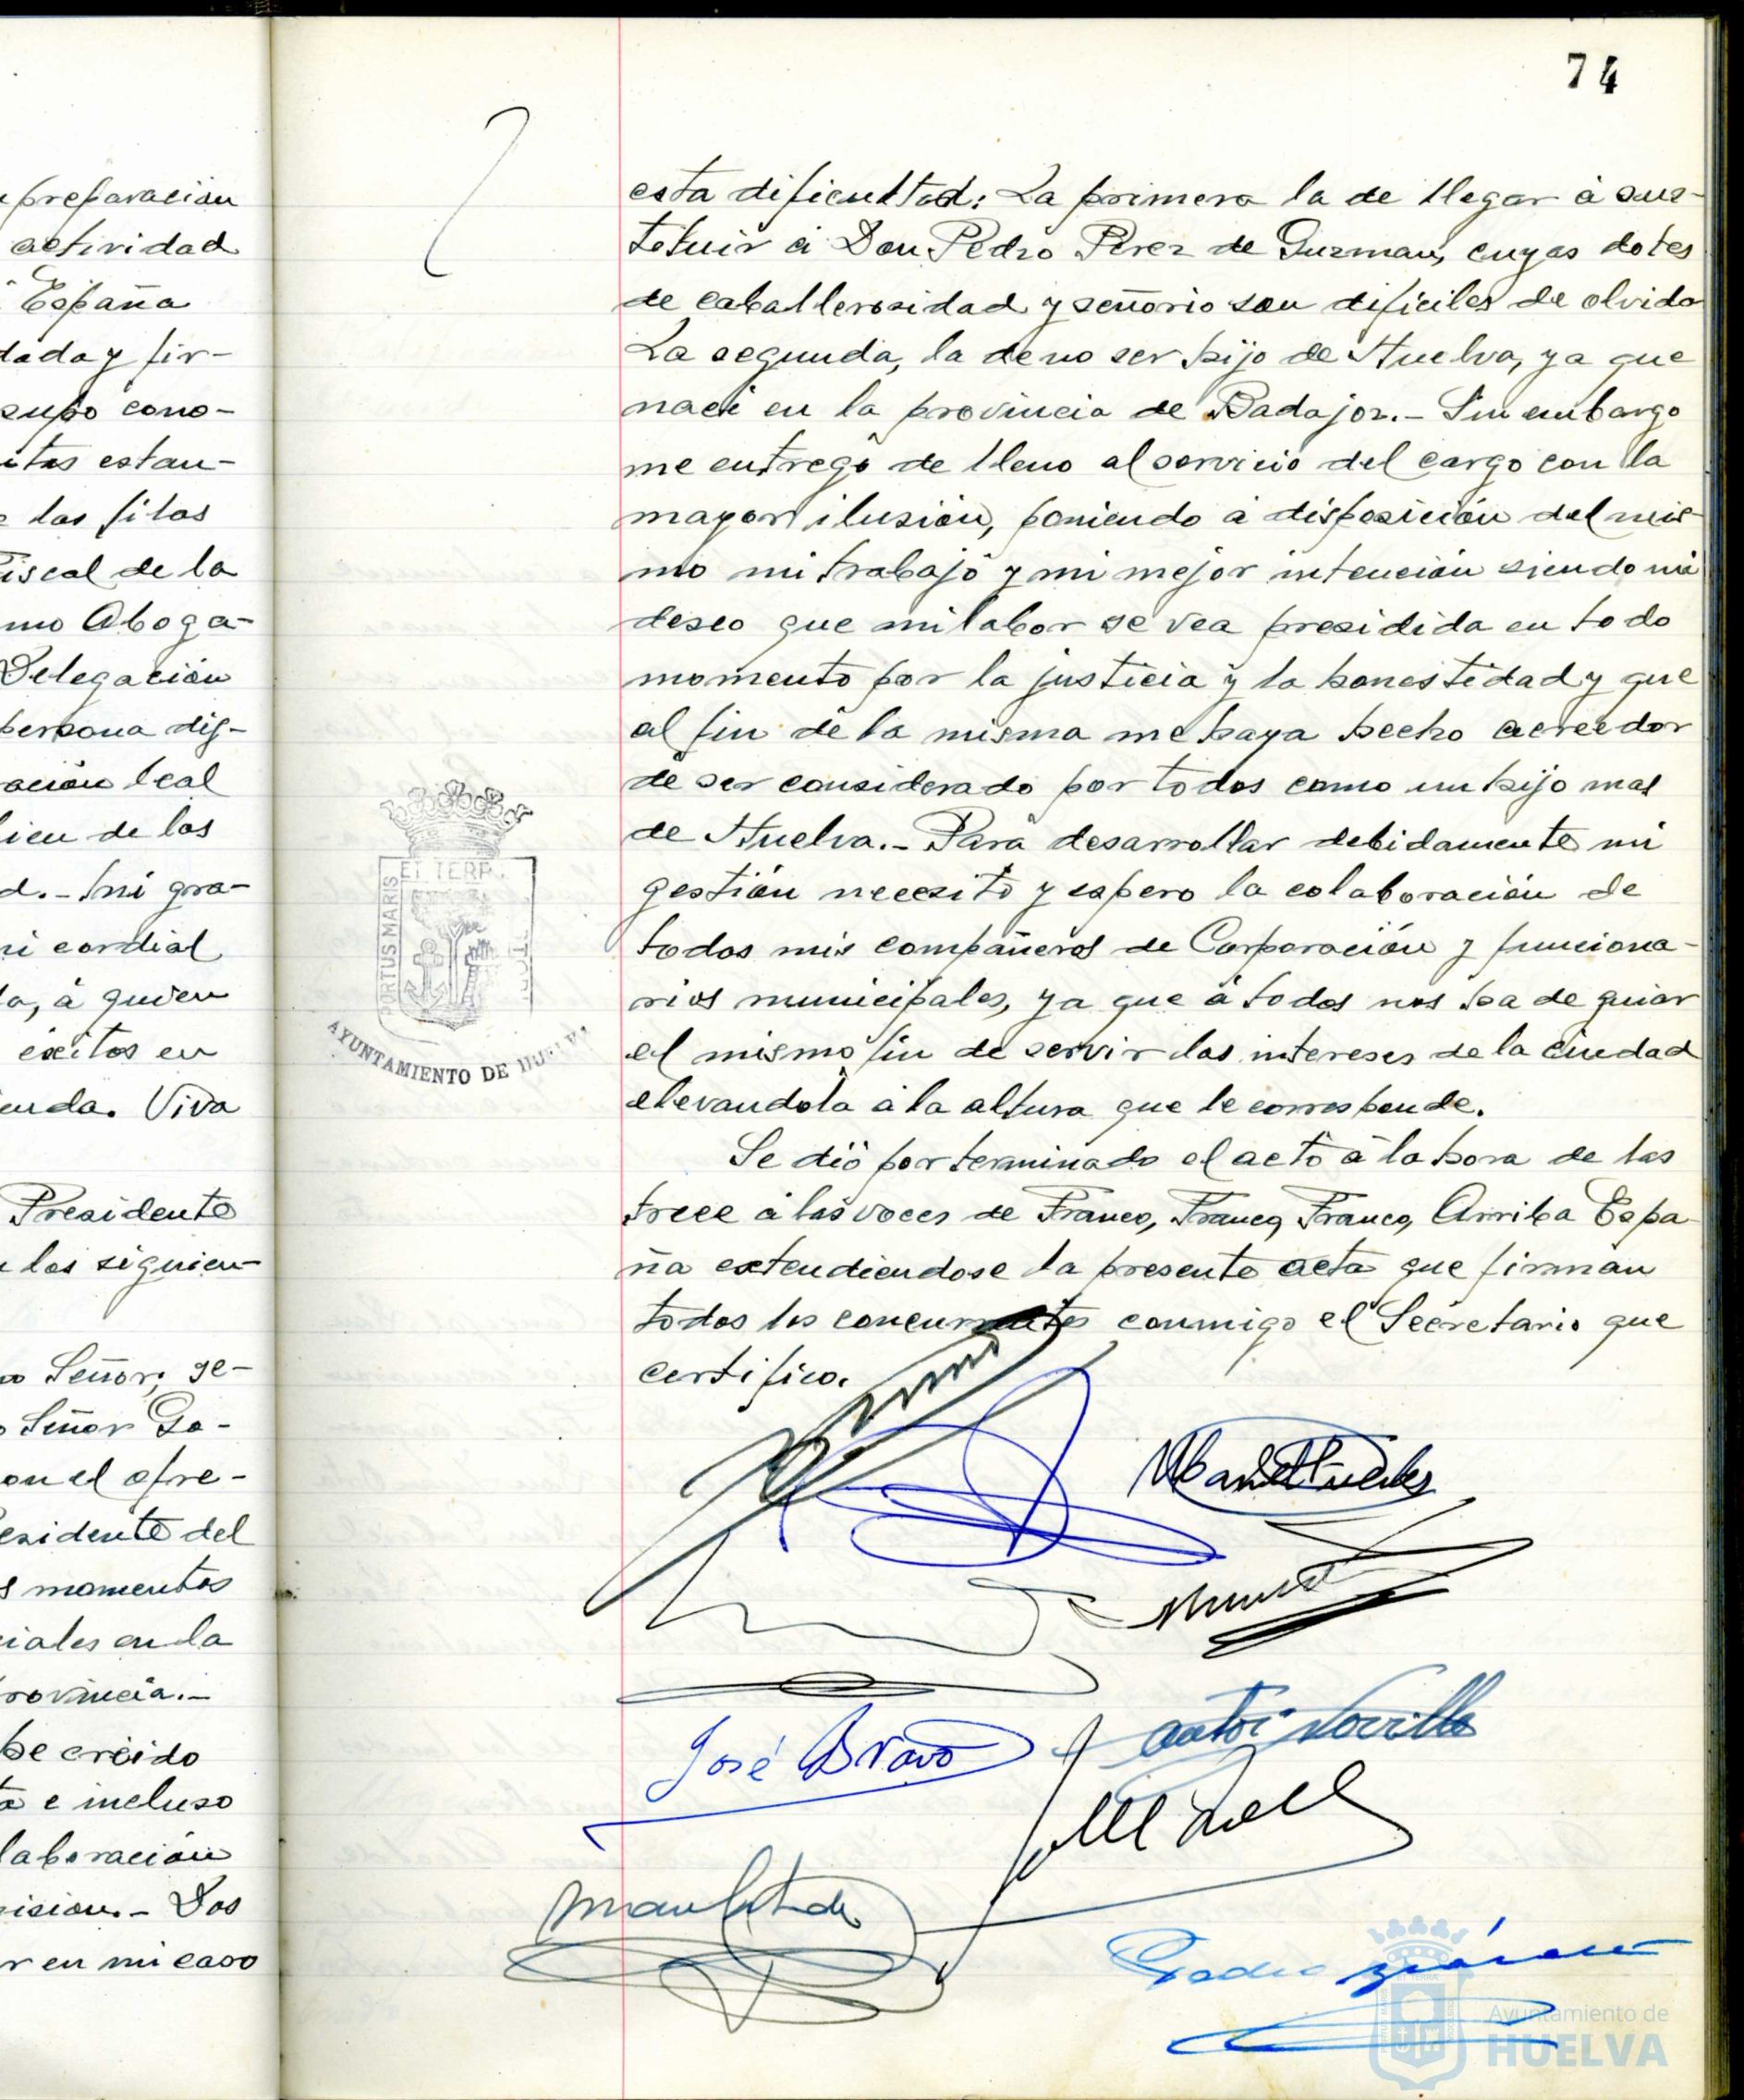 preparación
actividad
España
dada y fir-
supo cono-
estan-
las filas
Fiscal de la
mo Aboga-
Delegación
persona dig-
ación leal
bien de los
d.- mi gra-
mi cordial
a, á quien
exitos en
enda. Viva
Presidente
los siguien-
Señor; se-
Señor Go-
on el ofre-
esidente del
s momentos
ciales en la
rovincia.-
he creido
e incluso
laboración
isión.- Dos
r en mi caso
74
esta dificultad: La primera la de llegar á sus-
tituir á Don Pedro Perez de Guzman, cuyas dotes
de caballerosidad y señorio son dificiles de olvida
La segunda, la de no ser hijo de Huelva, ya que
naci en la provincia de Badajoz.- Sin embargo
me entrego de lleno al servicio del cargo con la
mayor ilusión, poniendo á disposición del mis-
mo mi trabajo y mi mejor intención siendo mi
deseo que mi labor se vea presidida en todo
momento por la justicia y la honestidad y que
al fin de la misma me haya hecho acreedor
de ser considerado por todos como un hijo mas
de Huelva.- Para desarrollar debidamente mi
gestión necesito y espero la colaboración de
todos mis compañeros de Corporación y funciona-
rios municipales, ya que á todos nos ha de guiar
el mismo fin de servir los intereses de la ciudad
elevandola á la altura que le corresponde.
Se dió por terminado el acto á la hora de las
trece á las voces de Franco, Franco, Franco, Arriba Espa-
ña extendiendose la presente acta que firman
todos los concurrentes conmigo el Secretario que
certifico.
PORTUS MARIS
ET TERR
AYUNTAMIENTO DE HUELVA
José Bravo
Ayuntamiento de
HUELVA